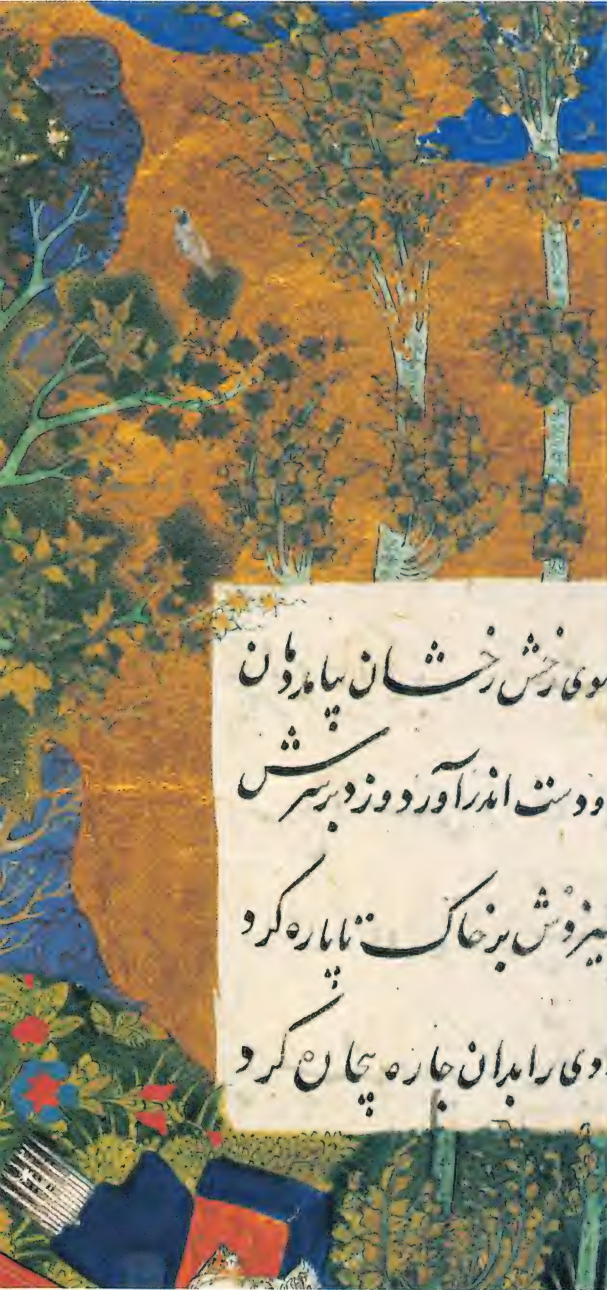 سوی رخش رخشان بیامد دمان
دو دست اندر آورد و زد بر سرش
زدش بر خاک تا پاره کرد
ددی را بدان چاره بیچاره کرد